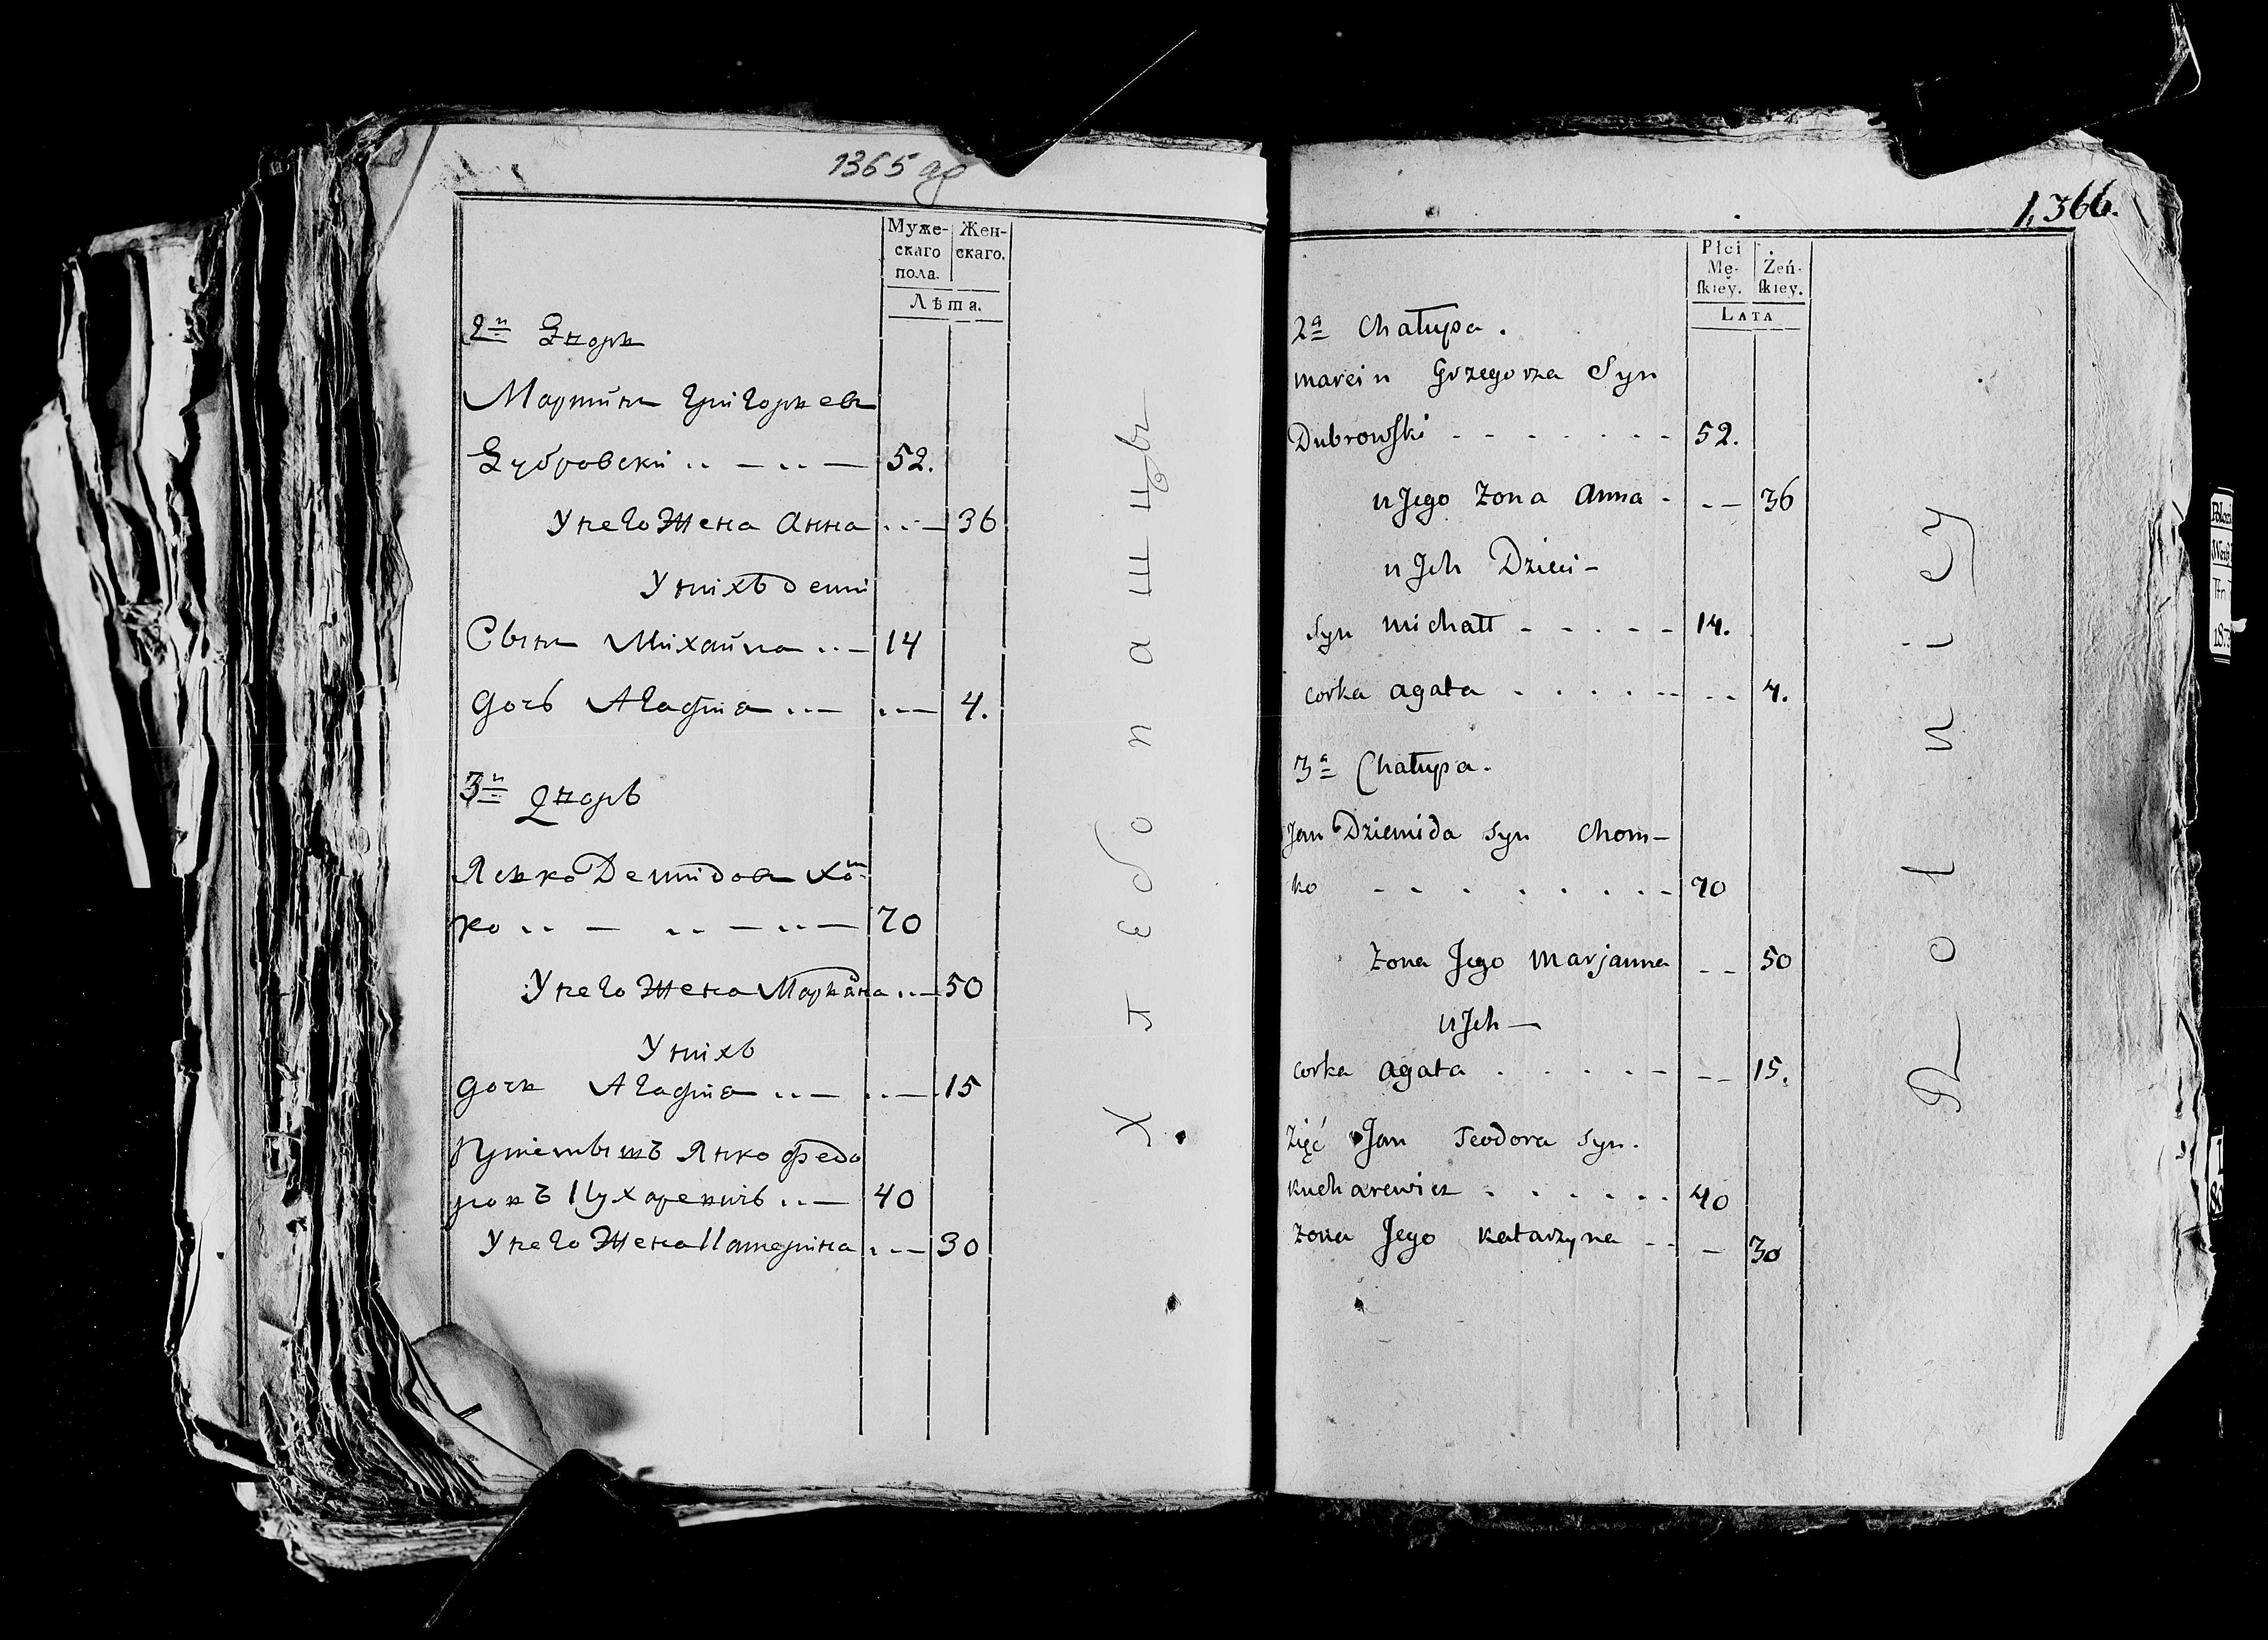 1365 
Муже-
скаго
пола.
Жен-
скаго.
Лѣта.
2й Дворъ
Мартинъ Григорьевъ
Дубровски .. — .. — 52.
У него Жена Анна ..— 36
У нихъ дети
Сынъ Михайла ..— 14
Дочь Агафия ..— ..— 4.
3й Дворъ
Янко Демидовъ Хом
ко .. — .. — .. — 70
У него Жена Марьяна ..— 50
У нихъ
Дочь Агафия ..— ..— 15
Янко Федо
ровъ Кухаревичъ ..— 40
У него Жена Катерина ..— 30
Хлебопашцы
1,366.
Płci
Mę-
skiey.
Żeń-
skiey.
LATA
2a Chałupa.
Marcin Grzegorza Syn
Dubrowski - - - - - - - 52.
u Jego Żona Anna - - - 36
u Jch Dzieci -
Syn Michałł - - - - - 14.
Corka Agata . . . . -- - - 4.
3a Chałupa.
Jan Dziemida Syn Chom-
ko - - . . . . . . - 70
Żona Jego Marjanna - - 50
u Jch —
Corka Agata . . . . - -- 15.
Zięć Jan Teodora Syn.
Kucharewicz . . . . . . 40
Żona Jego Katarzyna - - - 30
Rolnicy